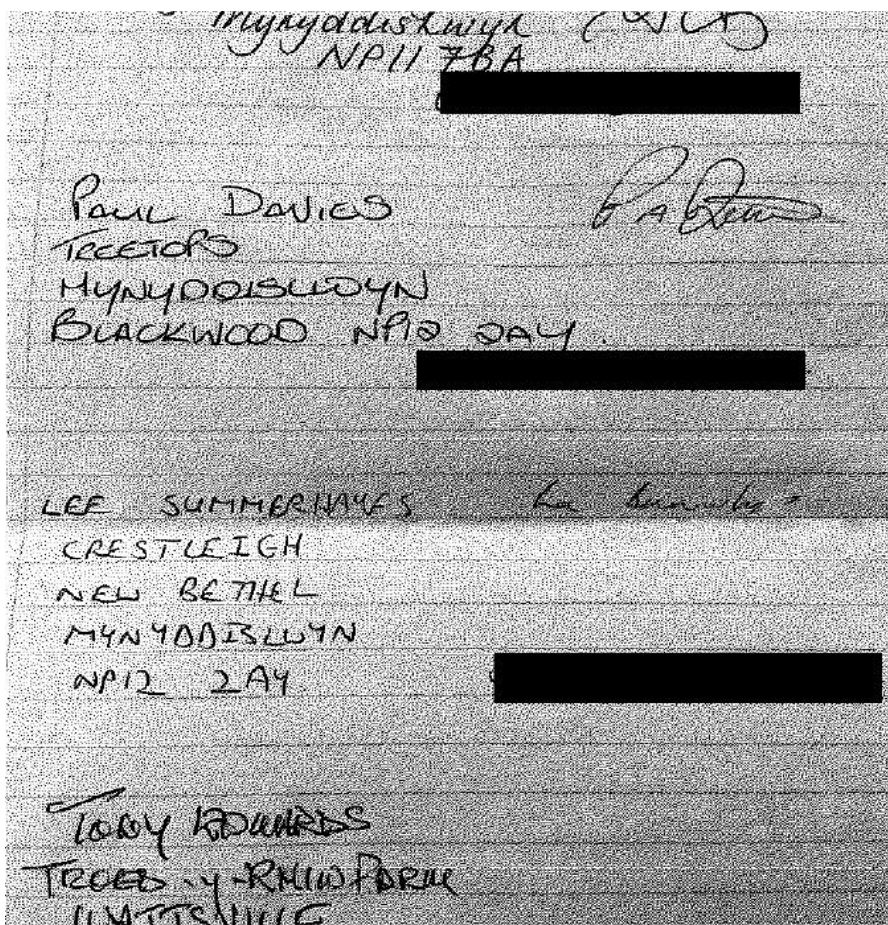 Mynyddislwyn
NP11 7BA
PAUL DAVIES
TREETOPS
MYNYDDISLWYN
BLACKWOOD NP12 2AY.
LEE SUMMERHAYES
CRESTLEIGH
NEW BETHEL
MYNYDDISLWYN
NP12 2AY
TOBY EDWARDS
TROED-Y-RHIW FARM
WATTSVILLE